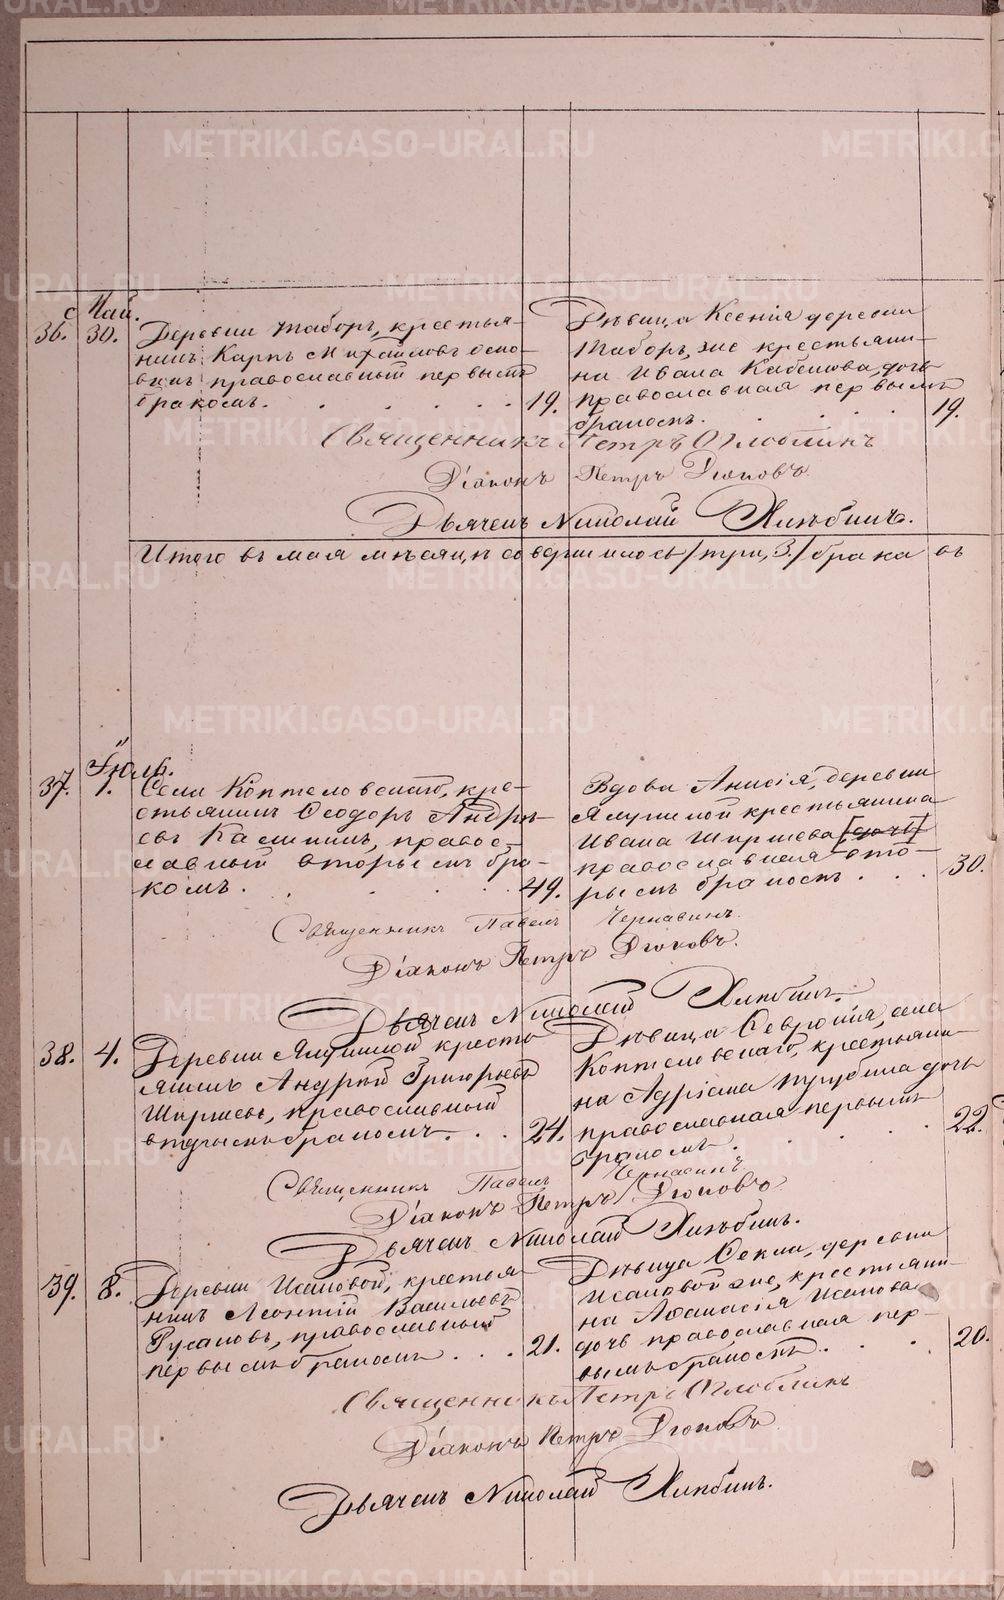 Май.
36. 30. Деревни Таборъ, крестья-
нинъ Карпъ Михайловъ
православный первымъ
бракомъ. 19.
Дѣвица Ксенія деревни
Таборъ, же крестьяни-
на Ивана Кабешова, дочь
православная первымъ
бракомъ. 19.
Священникъ Петръ Оглоблинъ
Діаконъ Петръ Діоковъ
Дьячекъ Николай Хлѣбинъ.
Итого въ мая мѣсяцѣ совершилось /три, 3./ брака
Іюль.
37. 1. Села Коптеловскаго, кре-
стьянинъ Ѳеодоръ Андрѣ-
евъ православ-
славный вторымъ бра-
комъ. 49.
Вдова Анисія, деревни
Ялуниной крестьянина
Ивана Ширшева
православная вто-
рымъ бракомъ. 30.
Священникъ Павелъ Чернавинъ.
Діаконъ Петръ Діоковъ.
Дьячекъ Николай Хлѣбинъ.
38. 4. Деревни Ялуниной кресть-
янинъ Андрей Григорьевъ
Ширшевъ, православный
вторымъ бракомъ. 24.
Дѣвица Февронія, села
Коптеловскаго, крестьяни-
на Адріана дочь
православная первымъ
бракомъ. 22.
Священникъ Павелъ Чернавинъ
Діаконъ Петръ Діоковъ
Дьячекъ Николай Хлѣбинъ.
39. 8. Деревни Исаковой, крестья
нинъ Леонтій Васильевъ
Русаковъ, православный
первымъ бракомъ 21.
Дѣвица Ѳекла, деревни
Исаковой же, крестьяни-
на Аѳанасія Исакова
дочь православная пер-
вымъ бракомъ. 20.
Священникъ Петръ Оглоблинъ
Діаконъ Петръ Діоковъ
Дьячекъ Николай Хлѣбинъ.
METRIKI.GASO-URAL.RU